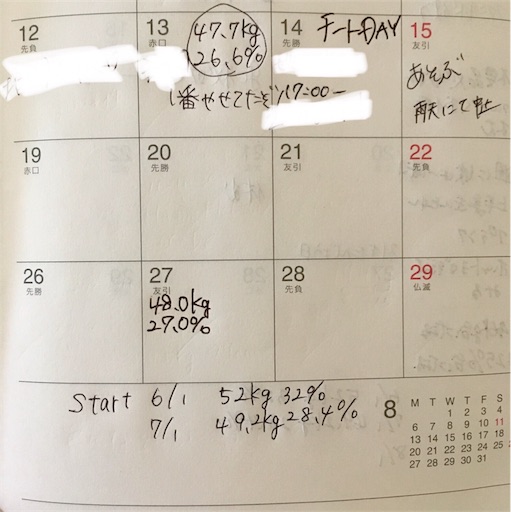 12 13 14 15
先負 赤口 先勝 友引
47.7kg
26.6%
チートDAY
1番やせてたぞ! 17:00〜
あそぶ
雨天にて中止
19 20 21 22
赤口 先勝 友引 先負
26 27 28 29
先勝 友引 先負 仏滅
48.0kg
27.0%
Start 6/1 52kg 32%
7/1 49.2kg 28.4%
8
M T W T F S
1 2 3 4
6 7 8 9 10 11
13 14 15 16 17 18
20 21 22 23 24 25
27 28 29 30 31